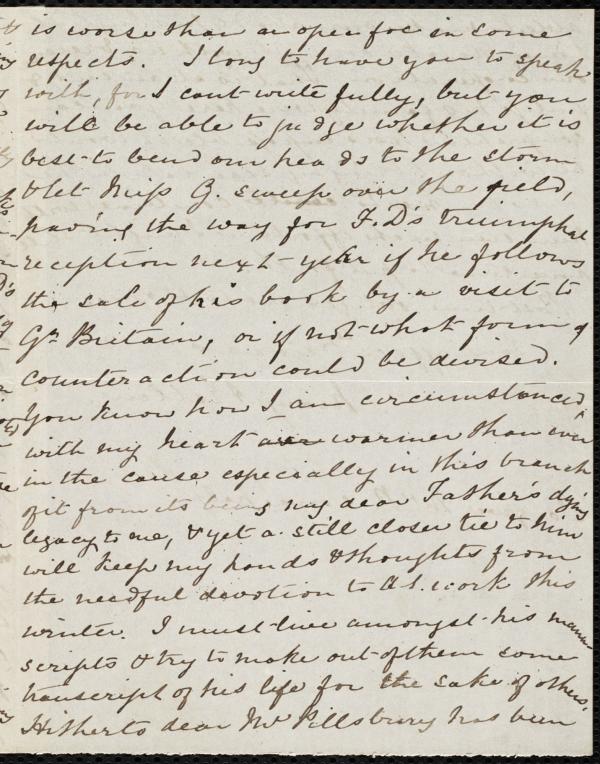 is worse than an open foe in some
respects. I long to have you to speak
with, for I cant write fully, but you
will be able to judge whether it is
best to bend our heads to the storm
& let Miss G. sweep over the field,
paving the way for F.D's triumphal
reception next year if he follows
the sale of his book by a visit to
Gt Britain, or if not what form of
counteraction could be devised.
You know how I am circumstanced,
with my heart warmer than ever
in the cause especially in this branch
of it from its being my dear Father's dying
legacy to me, & yet a still closer tie to him
will keep my hands & thoughts from
the needful devotion to A.S. work this
winter. I must live amongst his manu-
scripts & try to make out of them some
transcript of his life for the sake of others.
Hitherto dear Mr Pillsbury has been